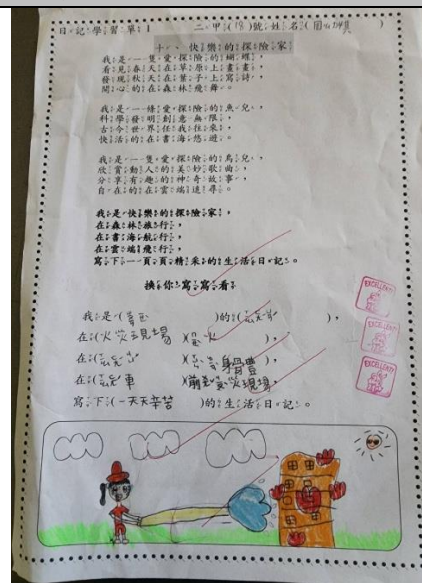 日記學習單1 二甲(18)號姓名(
十一、快樂的探險家
我是一隻愛探險的蝴蝶，
看見春天在草原上畫畫，
發現秋天在葉子上寫詩，
開心的在森林飛舞。
我是一條愛探險的魚兒，
科學發明創意無限，
古今世界任我往來，
快活的在書海悠遊。
我是一隻愛探險的鳥兒，
欣賞動人的美妙歌曲，
分享有趣的神奇故事，
自在的在雲端追尋。
我是快樂的探險家，
在森林旅行，
在書海航行，
在雲端飛行，
寫下一頁頁精采的生活日記。
換你寫寫看
我是( )的( )，
在(火災現場)( 火)，
在( )( 身體)，
在( 車)( 火災現場)，
寫下(一天天辛苦)的生活日記。
EXCELLENT
EXCELLENT
EXCELLENT